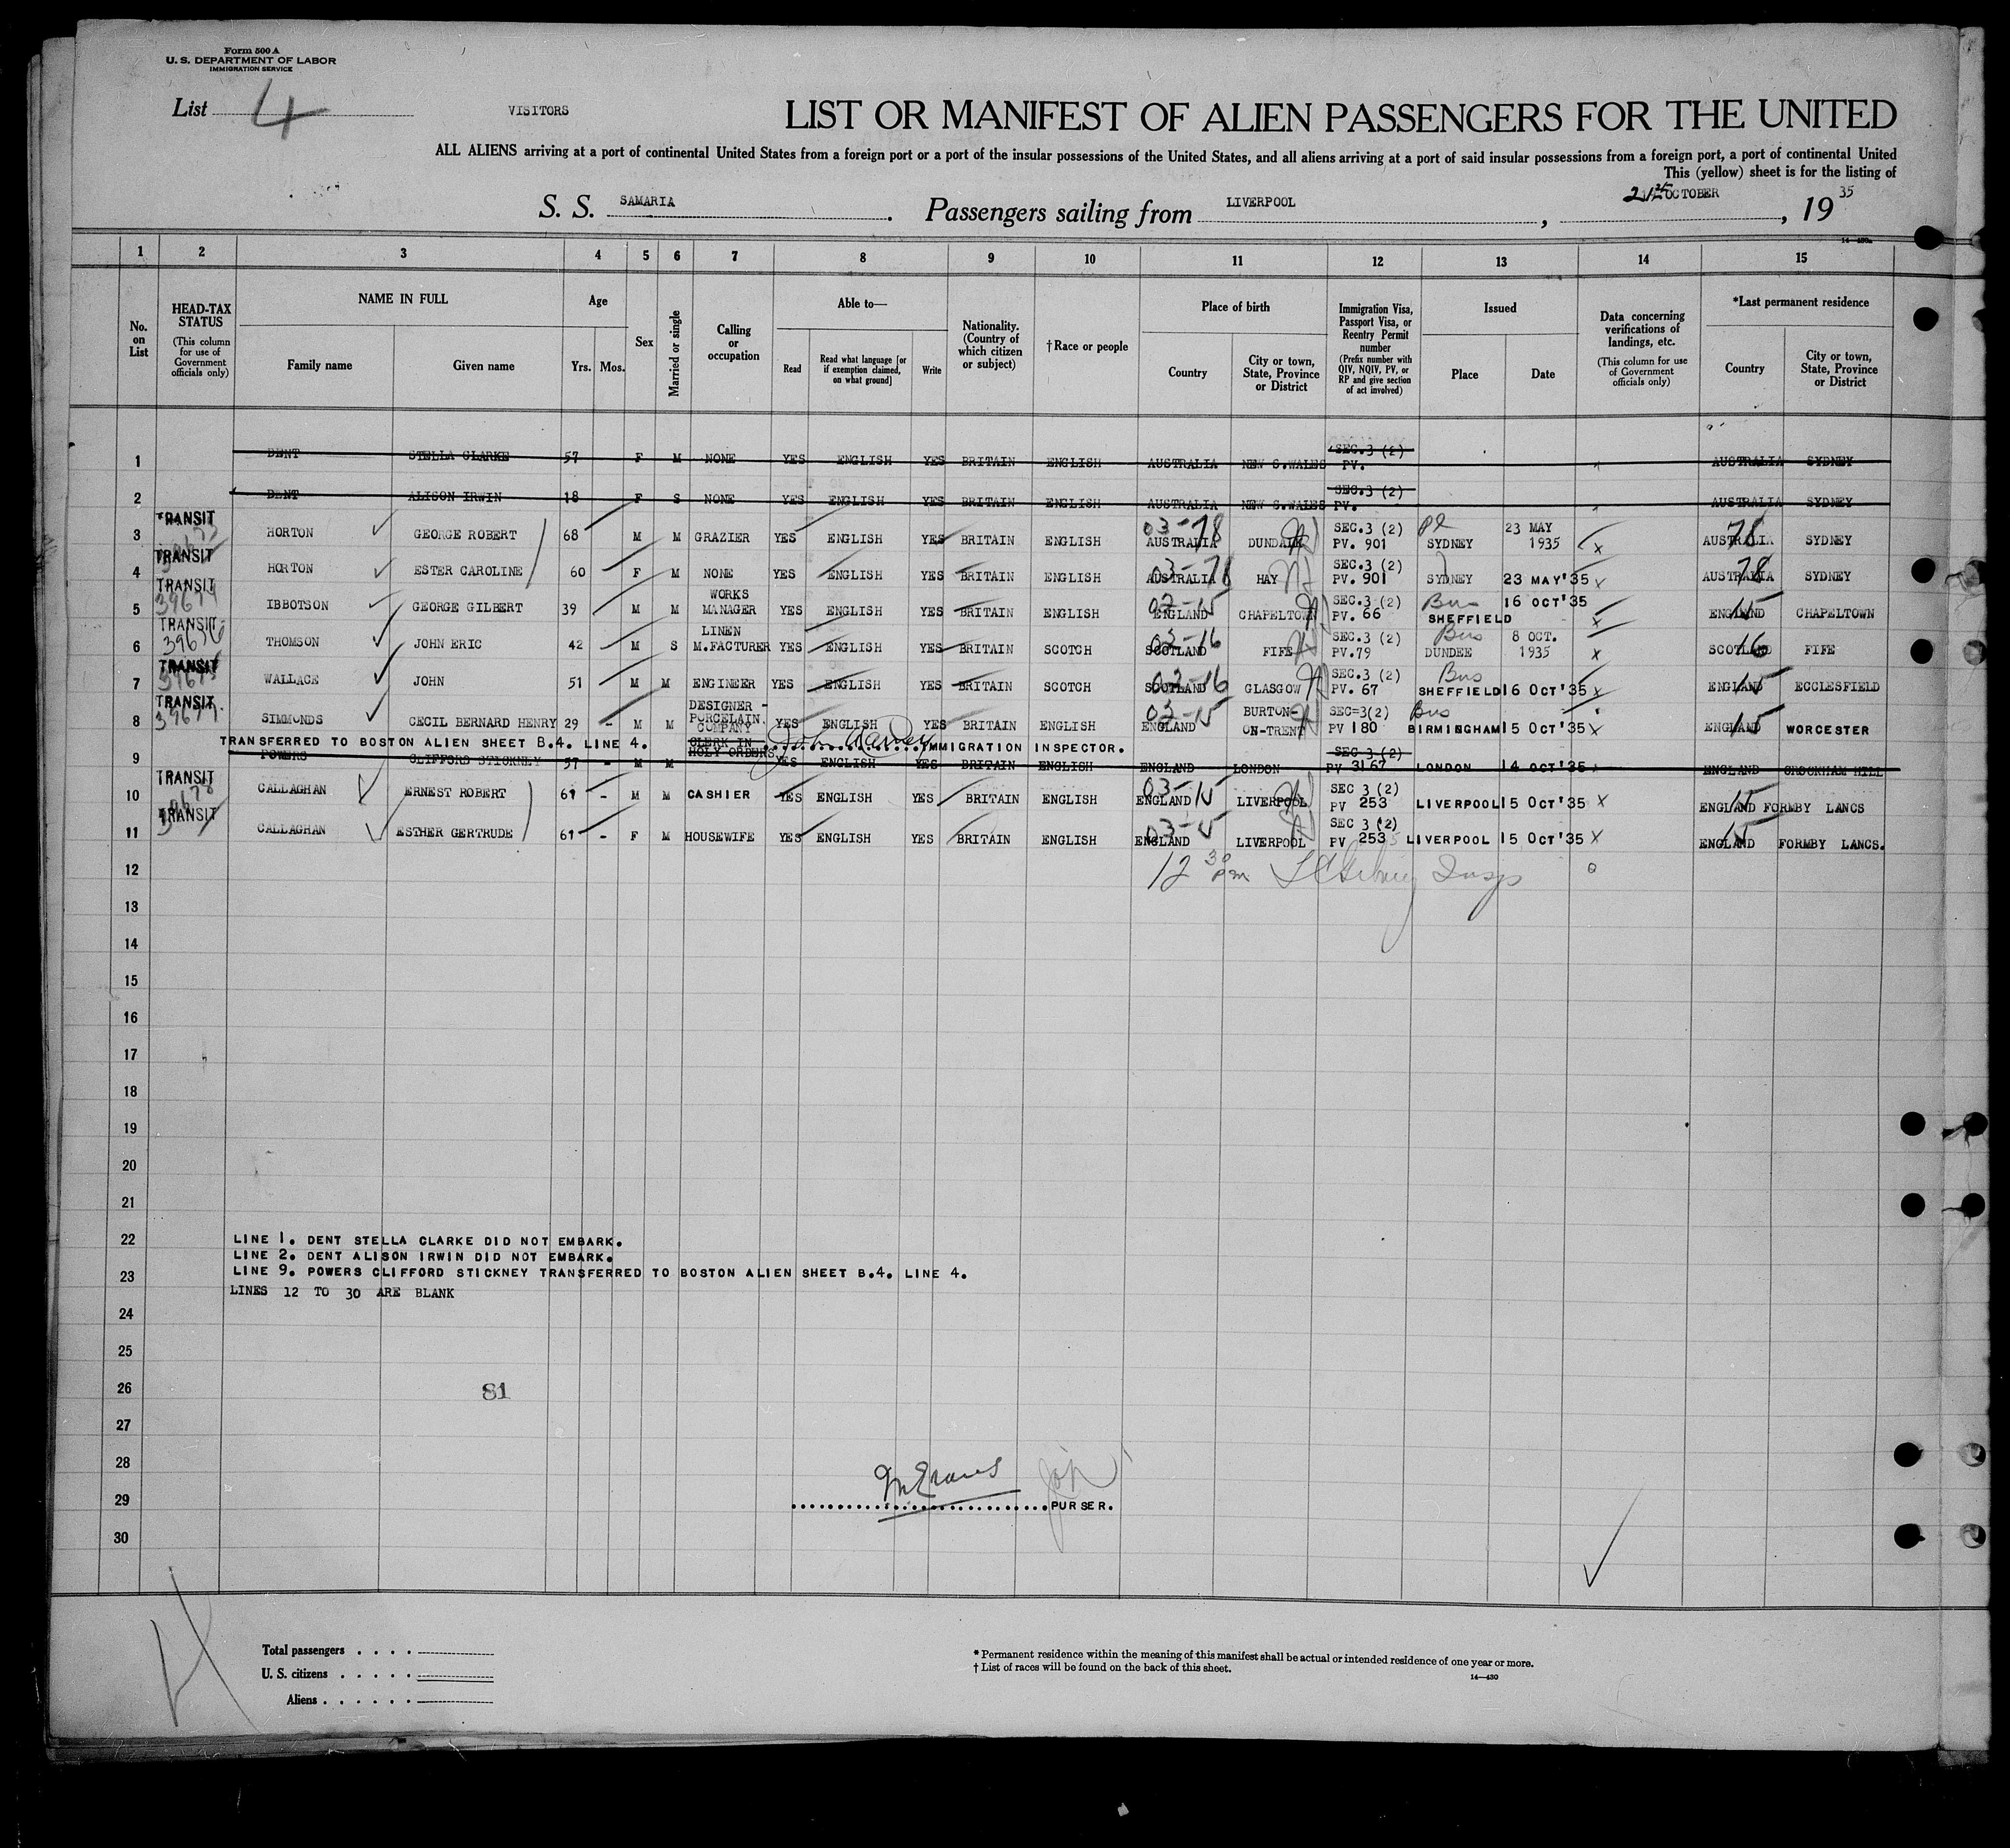 Form 500 A
U. S. DEPARTMENT OF LABOR
IMMIGRATION SERVICE
List 4
VISITORS
LIST OR MANIFEST OF ALIEN PASSENGERS FOR THE UNITED
ALL ALIENS arriving at a port of continental United States from a foreign port or a port of the insular possessions of the United States, and all aliens arriving at a port of said insular possessions from a foreign port, a port of continental United
This (yellow) sheet is for the listing of
S. S. SAMARIA. Passengers sailing from LIVERPOOL, 21st OCTOBER, 19 35
14—430a
1 2 3 4 5 6 7 8 9 10 11 12 13 14 15
No. on List
HEAD-TAX STATUS
(This column for use of Government officials only)
NAME IN FULL
Family name
Given name
Age
Yrs. Mos.
Sex
Married or single
Calling or occupation
Able to—
Read
Read what language [or if exemption claimed, on what ground]
Write
Nationality. (Country of which citizen or subject)
†Race or people
Place of birth
Country
City or town, State, Province or District
Immigration Visa, Passport Visa, or Reentry Permit number
(Prefix number with QIV, NQIV, PV, or RP and give section of act involved)
Issued
Place
Date
Data concerning verifications of landings, etc.
(This column for use of Government officials only)
*Last permanent residence
Country
City or town, State, Province or District
1 DENT STELLA CLARKE 57 F M NONE YES ENGLISH YES BRITAIN ENGLISH AUSTRALIA NEW S.WALES SEC.3 (2) PV. AUSTRALIA SYDNEY
2 DENT ALISON IRWIN 18 F S NONE YES ENGLISH YES BRITAIN ENGLISH AUSTRALIA NEW S.WALES SEC.3 (2) PV. AUSTRALIA SYDNEY
3 TRANSIT HORTON GEORGE ROBERT 68 M M GRAZIER YES ENGLISH YES BRITAIN ENGLISH 03-78 AUSTRALIA SEC.3 (2) PV. 901 SYDNEY 23 MAY 1935 x 78 AUSTRALIA SYDNEY
4 TRANSIT HORTON ESTER CAROLINE 60 F M NONE YES ENGLISH YES BRITAIN ENGLISH 03-78 AUSTRALIA HAY SEC.3 (2) PV. 901 SYDNEY 23 MAY'35 x 78 AUSTRALIA SYDNEY
5 TRANSIT IBBOTSON GEORGE GILBERT 39 M M WORKS MANAGER YES ENGLISH YES BRITAIN ENGLISH 03-15 ENGLAND CHAPELTOWN SEC.3 (2) PV. 66 Bus SHEFFIELD 16 OCT'35 x 15 ENGLAND CHAPELTOWN
6 TRANSIT 39676 THOMSON JOHN ERIC 42 M S LINEN M.FACTURER YES ENGLISH YES BRITAIN SCOTCH 03-16 SCOTLAND FIFE SEC.3 (2) PV.79 Bus DUNDEE 8 OCT. 1935 x 16 SCOTLAND FIFE
7 TRANSIT WALLACE JOHN 51 M M ENGINEER YES ENGLISH YES BRITAIN SCOTCH 03-16 SCOTLAND GLASGOW SEC.3 (2) PV. 67 Bus SHEFFIELD 16 OCT'35 x 15 ENGLAND ECCLESFIELD
8 TRANSIT 39677 SIMMONDS CECIL BERNARD HENRY 29 - M M DESIGNER - PORCELAIN COMPANY YES ENGLISH YES BRITAIN ENGLISH 03-15 ENGLAND BURTON-ON-TRENT SEC=3(2) PV 180 Bus BIRMINGHAM 15 OCT'35 x 15 ENGLAND WORCESTER
TRANSFERRED TO BOSTON ALIEN SHEET B.4. LINE 4. IMMIGRATION INSPECTOR.
9 POWERS CLIFFORD STICKNEY 57 - M M CLERK IN HOLY ORDERS YES ENGLISH YES BRITAIN ENGLISH ENGLAND LONDON SEC 3 (2) PV 3167 LONDON 14 OCT'35 ENGLAND CROCKHAM HILL
10 TRANSIT CALLAGHAN ERNEST ROBERT 61 - M M CASHIER YES ENGLISH YES BRITAIN ENGLISH 03-15 ENGLAND LIVERPOOL SEC 3 (2) PV 253 LIVERPOOL 15 OCT'35 x 15 ENGLAND FORMBY LANCS
11 TRANSIT CALLAGHAN ESTHER GERTRUDE 61 - F M HOUSEWIFE YES ENGLISH YES BRITAIN ENGLISH 03-15 ENGLAND LIVERPOOL SEC 3 (2) PV 253 LIVERPOOL 15 OCT'35 x 15 ENGLAND FORMBY LANCS.
12 12 30 pm Insp
13
14
15
16
17
18
19
20
21
22
LINE 1. DENT STELLA CLARKE DID NOT EMBARK.
LINE 2. DENT ALISON IRWIN DID NOT EMBARK.
23 LINE 9. POWERS CLIFFORD STICKNEY TRANSFERRED TO BOSTON ALIEN SHEET B.4. LINE 4.
LINES 12 TO 30 ARE BLANK
24
25
26 81
27
28
29 PURSER.
30
Total passengers
U. S. citizens
Aliens
* Permanent residence within the meaning of this manifest shall be actual or intended residence of one year or more.
† List of races will be found on the back of this sheet.
14—430